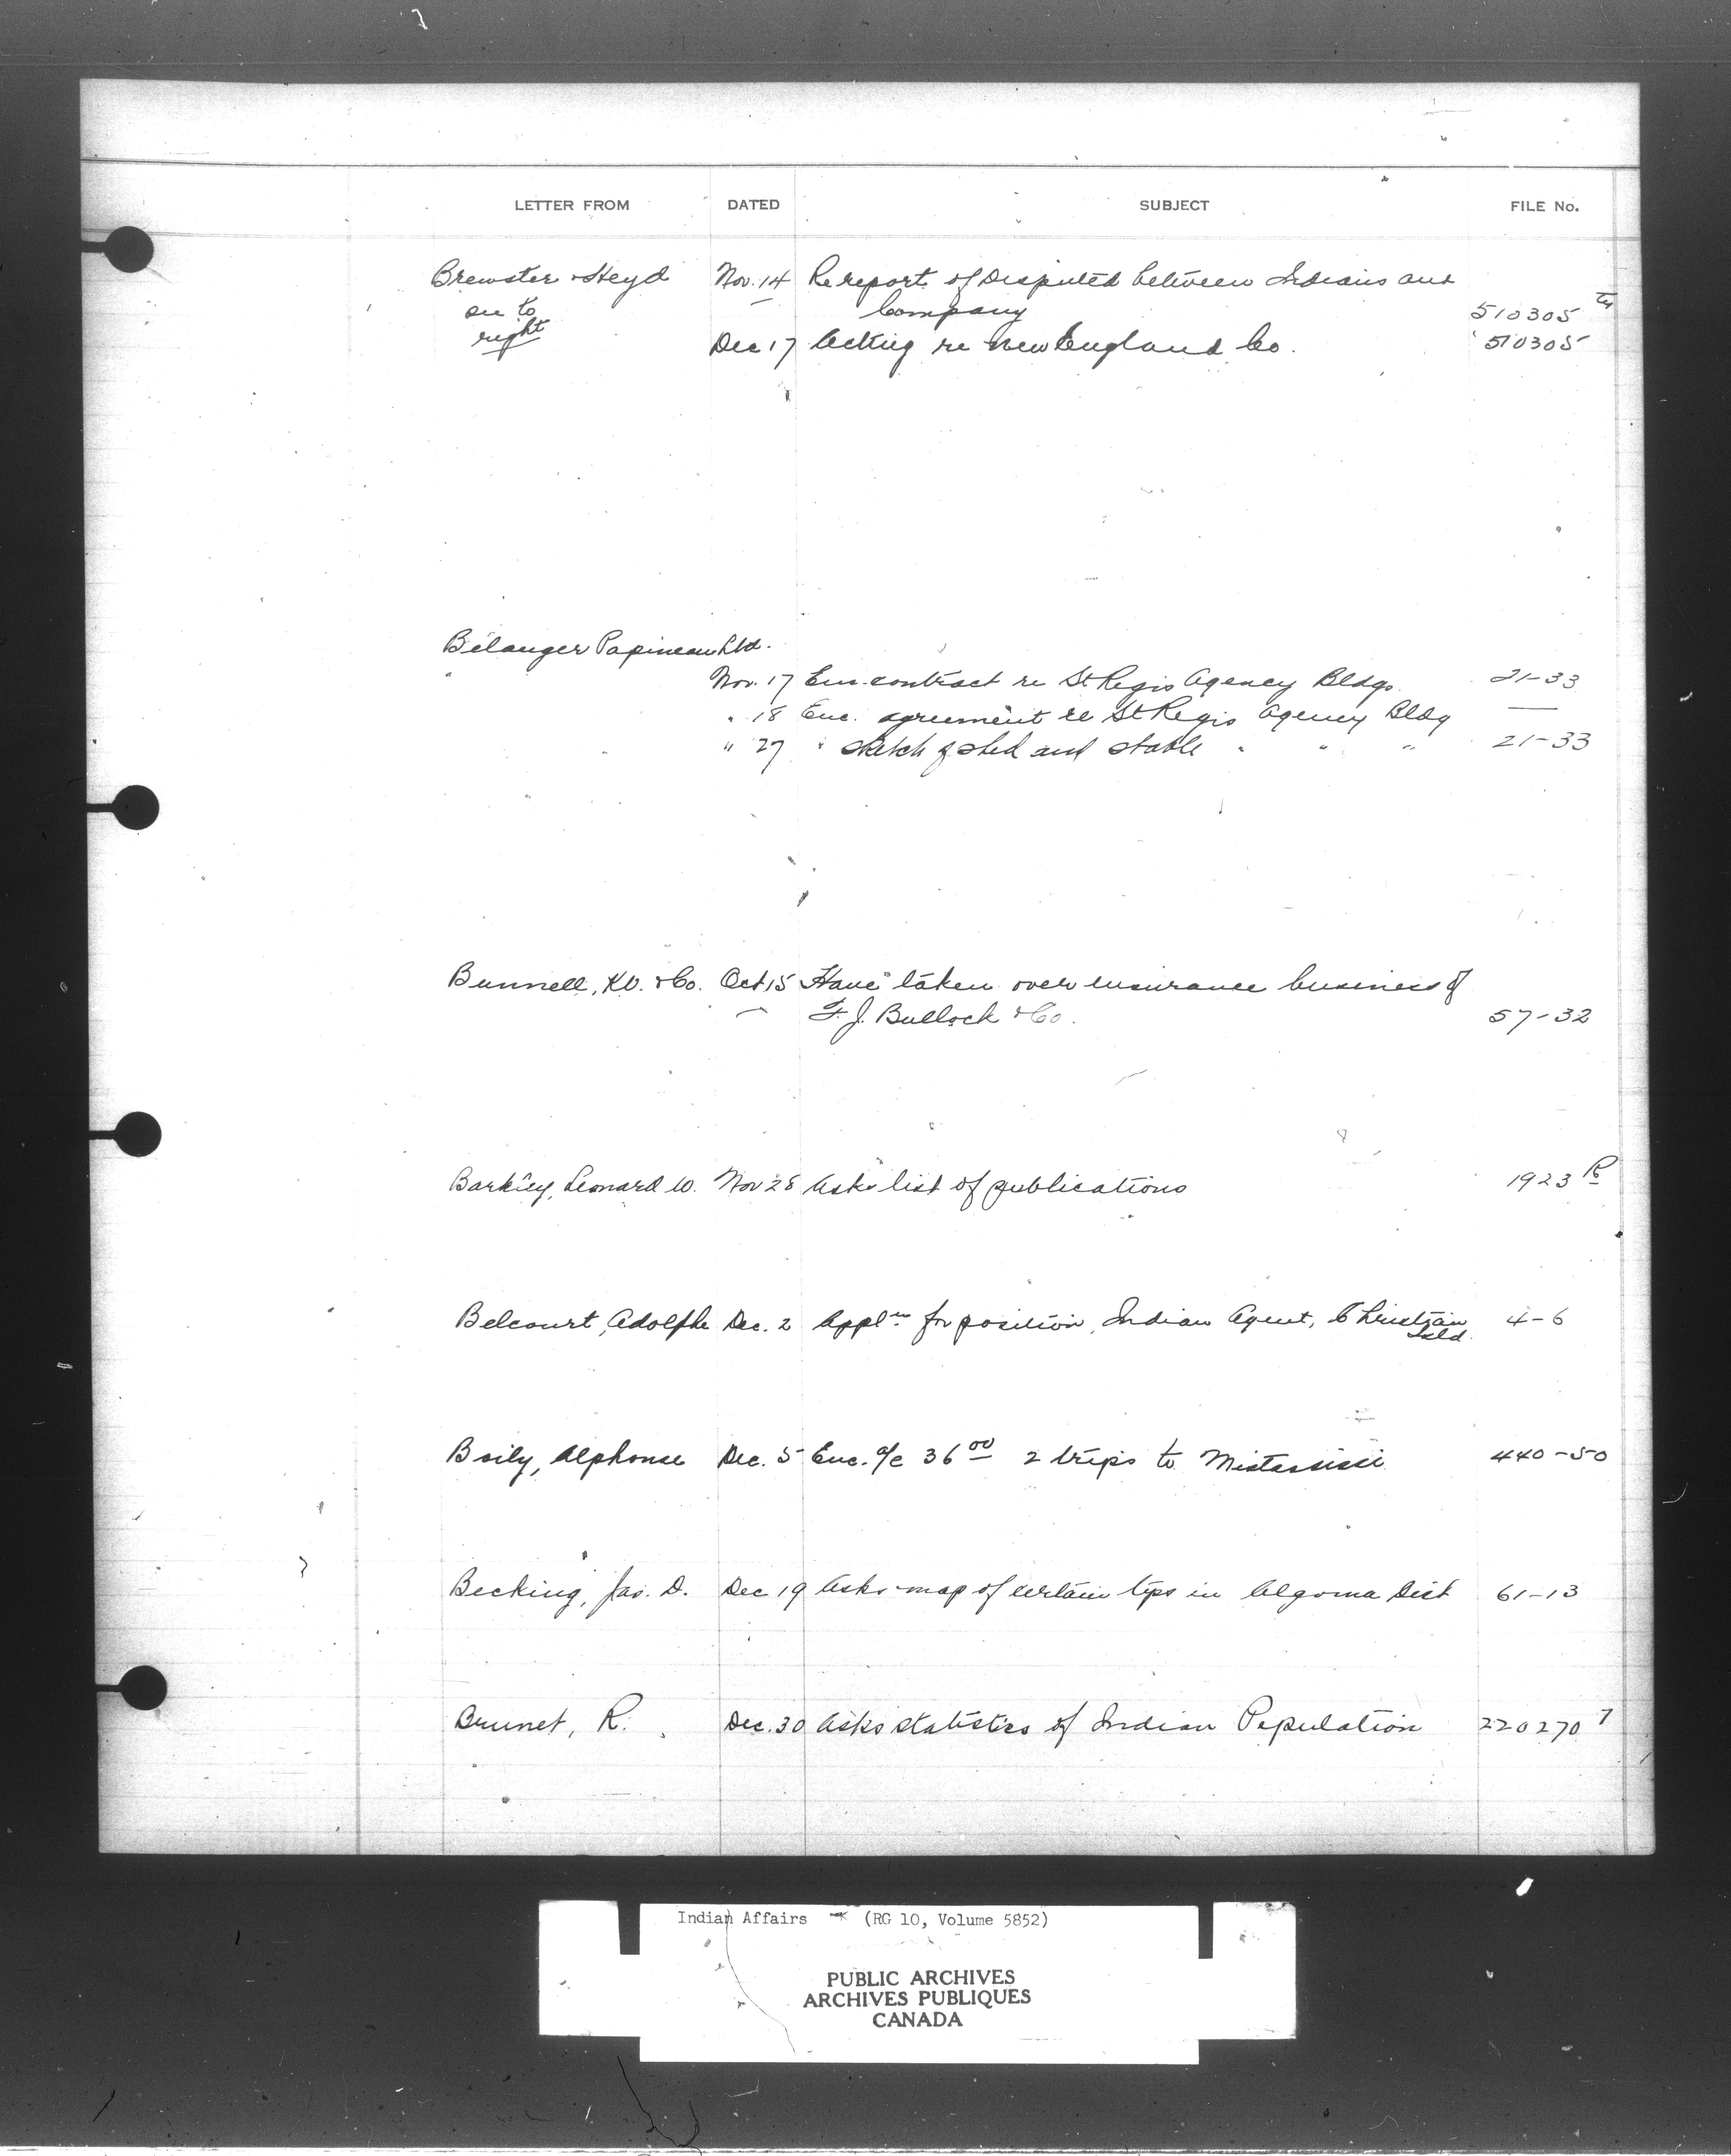 LETTER FROM DATED SUBJECT FILE No.
Brewster & Heyd Nov. 14 Re report of Disputed between Indians and
see to Company 510305
right
Dec 17 Acting re New England Co. 510305
Bélanger Papineau Ltd.
" Nov. 17 Enc. contract re St Regis Agency Bldgs. 21-33
" 18 Enc. agreement re St Regis Agency Bldg —
" 27 " sketch of shed and stable " " " 21-33
Bunnell, & Co. Oct 15 Have taken over insurance business of
F. J. Bullock & Co. 57-32
Barkley, Leonard W. Nov 28 Asks list of publications 1923 R
Belcourt, Adolphe Dec. 2 Appln for position, Indian Agent, Christian 4-6
Isld.
Boily, Alphonse Dec. 5 Enc. a/c 36 00 2 trips to Mistassini 440-50
Becking, Jas. D. Dec 19 Asks map of certain tps in Algoma Dist 61-13
Brunet, R. Dec. 30 Asks statistics of Indian Population 220270 7
Indian Affairs (RG 10, Volume 5852)
PUBLIC ARCHIVES
ARCHIVES PUBLIQUES
CANADA